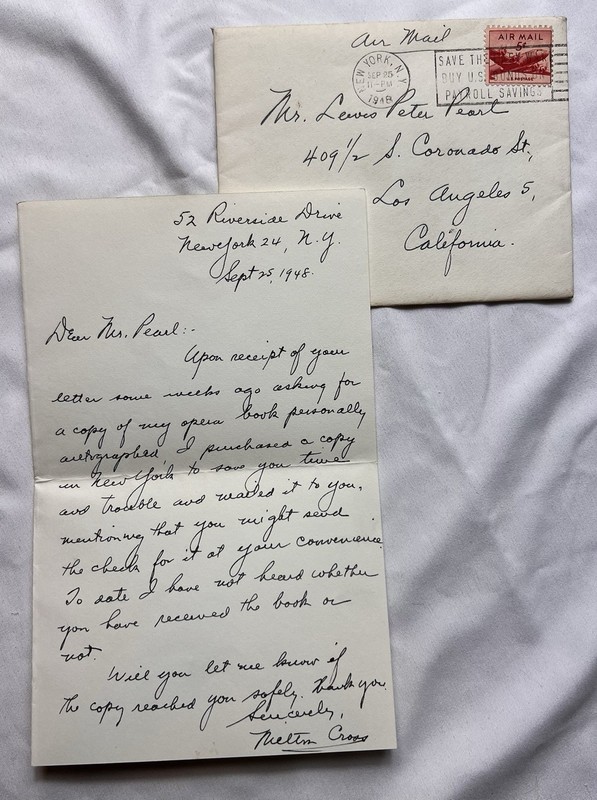 Air Mail
AIR MAIL
5¢
NEW YORK, N.Y.
SEP 25
11-PM
1948
SAVE THE
BUY U.S.
PAYROLL SAVINGS
Mr. Lewis Peter Pearl
409 1/2 S. Coronado St.,
Los Angeles 5,
California.
52 Riverside Drive
New York 24, N.Y.
Sept 25, 1948.
Dear Mr. Pearl:-
Upon receipt of your
letter some weeks ago asking for
a copy of my opera book personally
autographed, I purchased a copy
in New York to save you time
and trouble and mailed it to you,
mentioning that you might send
the check for it at your convenience.
To date I have not heard whether
you have received the book or
not.
Will you let me know if
the copy reached you safely. Thank you.
Sincerely,
Milton Cross